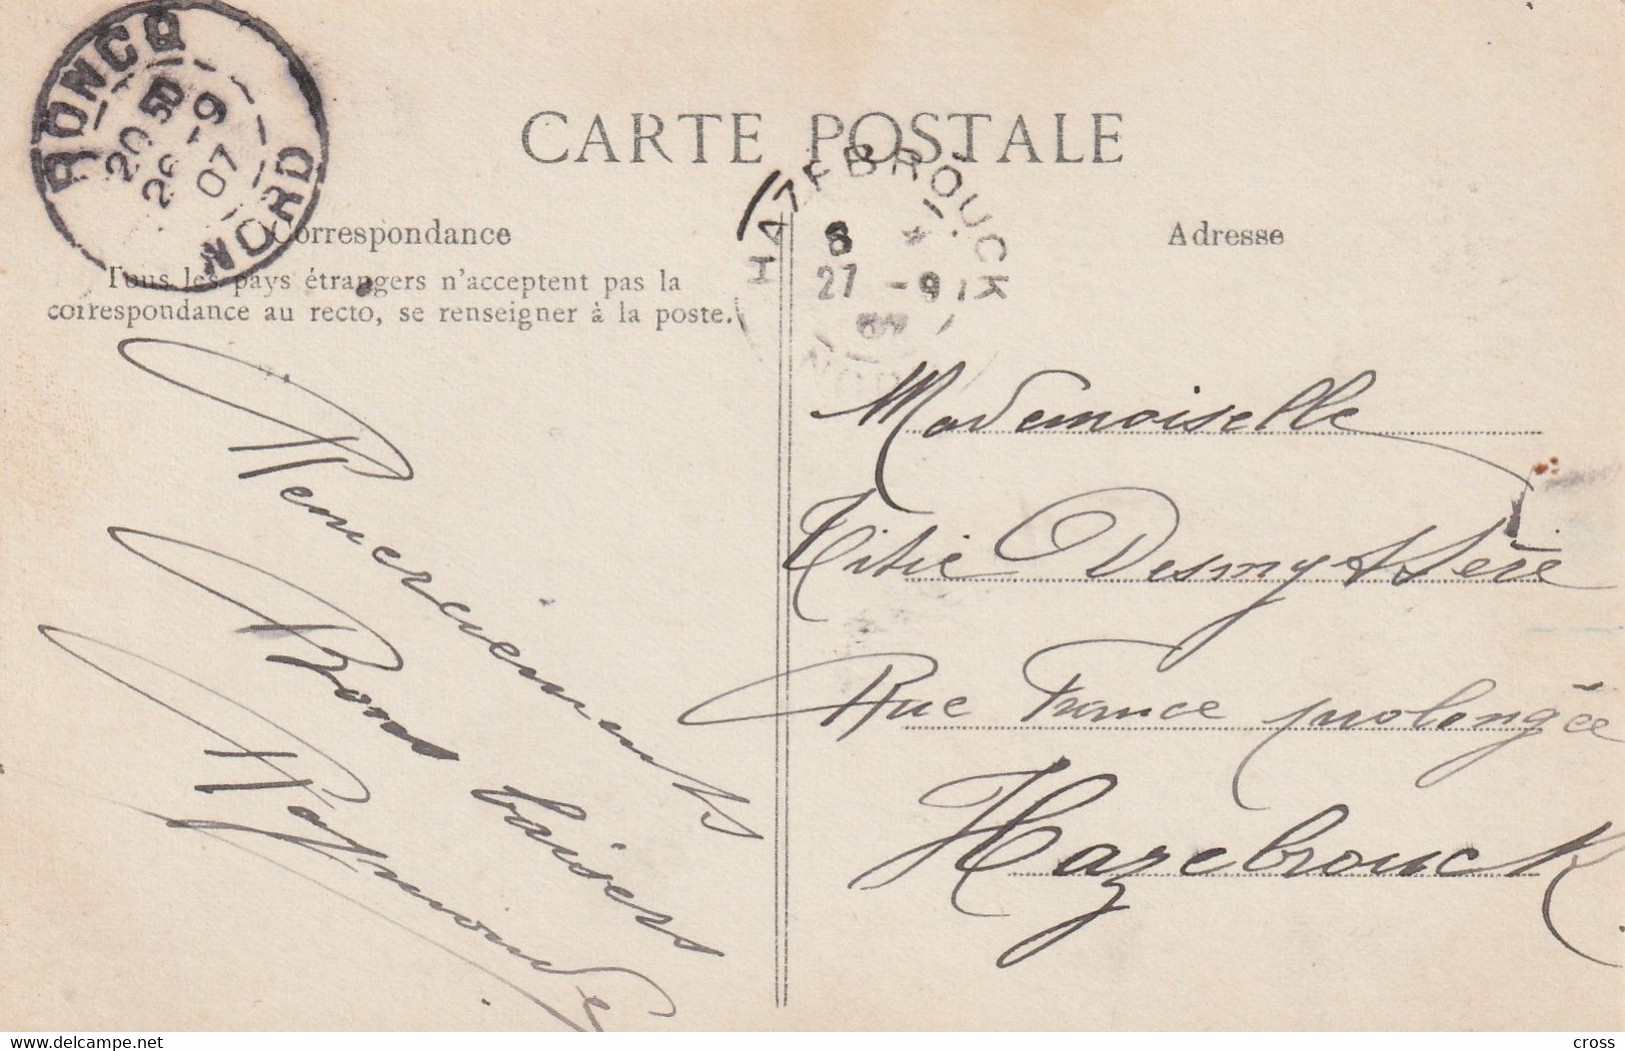 RONCQ
20 50
26 -9
07
NORD
CARTE POSTALE
HAZEBROUCK
8
27 -9
Correspondance
Adresse
Tous les pays étrangers n'acceptent pas la
correspondance au recto, se renseigner à la poste.
Remerciements
Bons baisers
Raymonde
Mademoiselle
Titie Desmyttère
Rue France prolongée
Hazebrouck
www.delcampe.net
cross